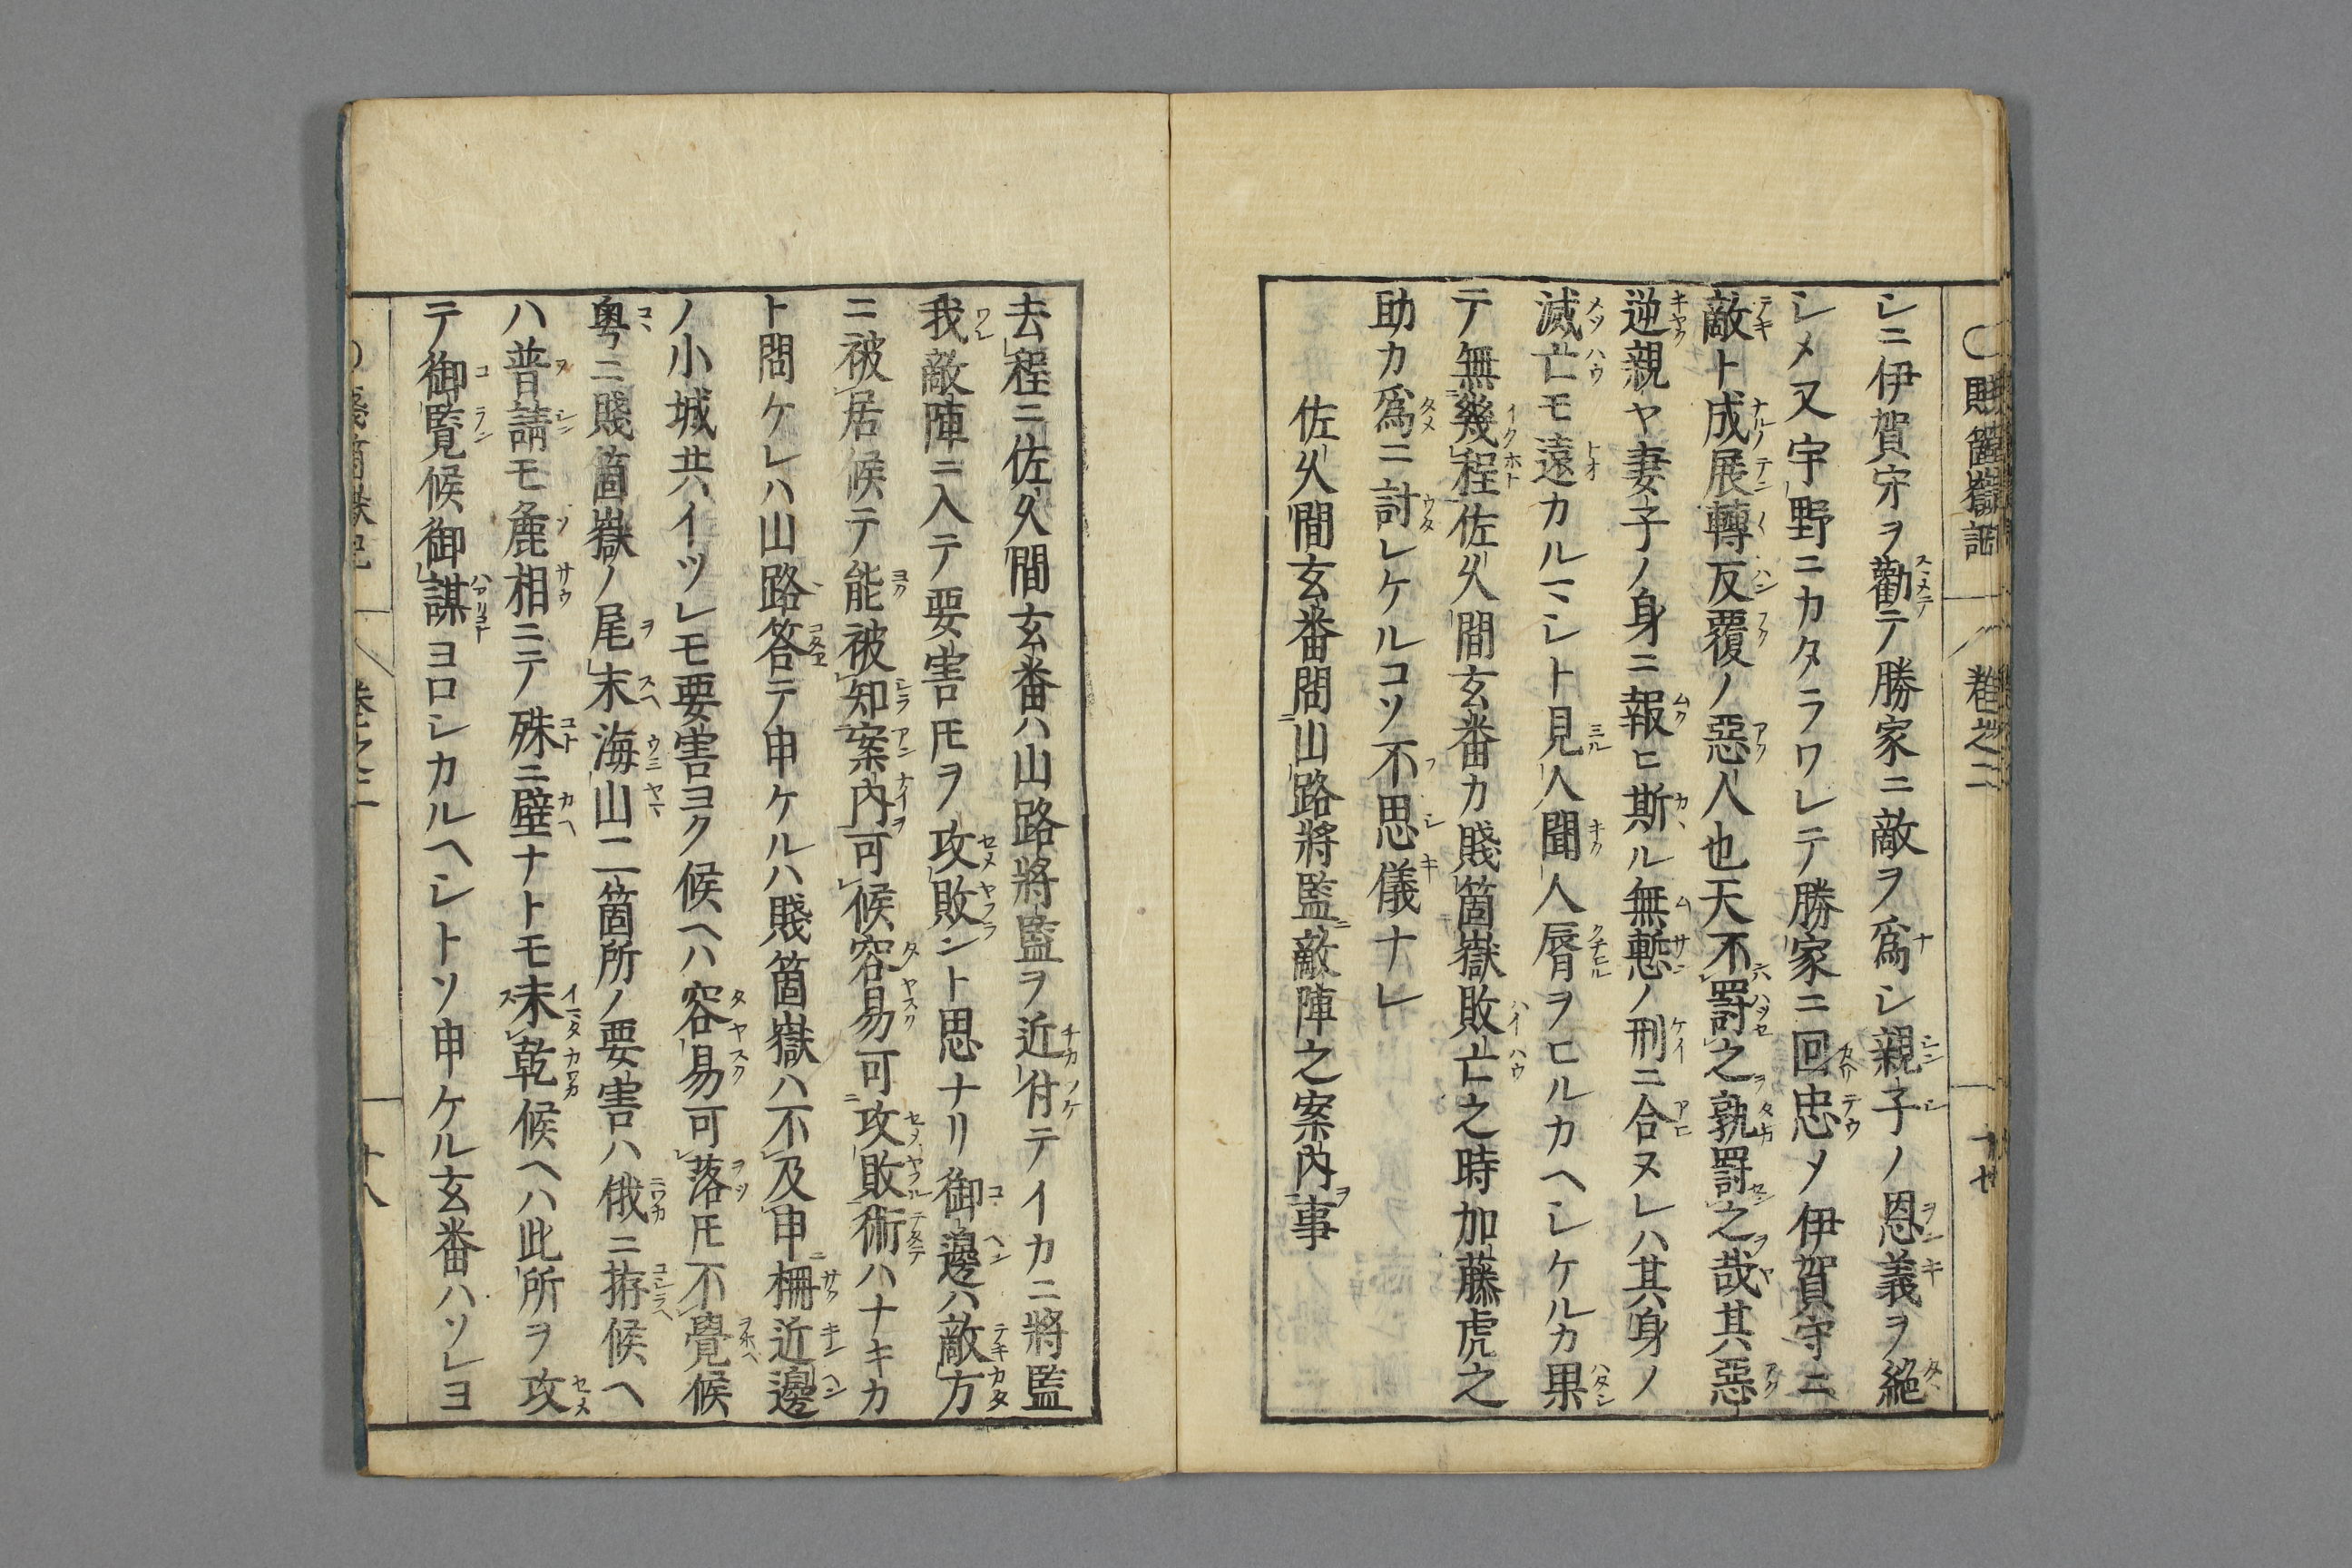 賤箇嶽記 卷之二 十七
シニ伊賀守ヲ勸テ勝家ニ敵ヲ爲シ親子ノ恩義ヲ絕
シメ又宇野ニカタラワレテ勝家ニ回忠メ伊賀守ニ
敵ト成展轉反覆ノ惡人也天不罰之孰罰之哉其惡
逆親ヤ妻子ノ身ニ報ヒ斯ル無慙ノ刑ニ合ヌレハ其身ノ
滅亡モ遠カルマシト見人聞人脣ヲヒルカヘシケルカ果
テ無幾程佐久間玄番カ賤箇嶽敗亡之時加藤虎之
助カ爲ニ討レケルコソ不思儀ナレ
佐久間玄番問山路將監敵陣之案內事
去程ニ佐久間玄番ハ山路將監ヲ近付テイカニ將監
我敵陣ニ入テ要害𪜈ヲ攻敗ント思ナリ御邊ハ敵方
ニ被居候テ能被知案內可候容易可攻敗術ハナキカ
ト問ケレハ山路答テ申ケルハ賤箇嶽ハ不及申柵近邊
ノ小城共イツレモ要害ヨク候ヘハ容易可落𪜈不覺候
粤ニ賤箇嶽ノ尾末海山二箇所ノ要害ハ俄ニ拵候ヘ
ハ普請モ麁相ニテ殊ニ壁ナトモ未乾候ヘハ此所ヲ攻
テ御覽候御謀ヨロシカルヘシトソ申ケル玄番ハソレヨ
十八